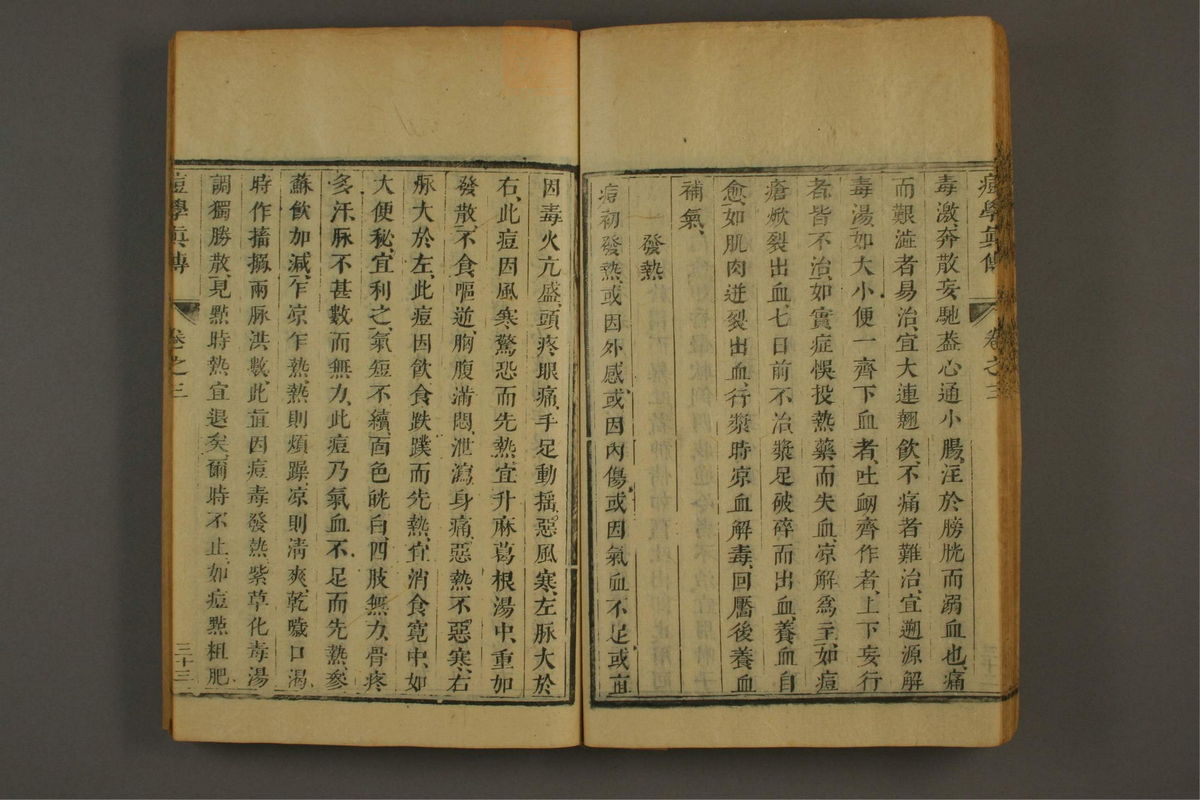 痘學眞傳 卷之三
毒激、奔散妄馳、葢心通小腸、注於膀胱而溺血也、痛
而艱澁者易治、宜大連翹飲、不痛者難治、宜遡源解
毒湯、如大小便一齊下血者、吐衂齊作者、上下妄行
者、皆不治、如實症悞投熱藥而失血、凉解爲主、如痘
瘡焮裂出血、七日前不治、漿足破碎而出血、養血自
愈、如肌肉迸裂出血、行漿時凉血解毒、回靨後養血
補氣、
發熱
痘初發熱、或因外感、或因內傷、或因氣血不足、或直
因毒火亢盛、頭疼眼痛、手足動搖、惡風寒、左脉大於
右、此痘因風寒驚恐而先熱、宜升麻葛根湯中、重如
發散、不食嘔逆、胸腹滿悶、泄瀉身痛、惡熱不惡寒、右
脉大於左、此痘因飲食跌蹼而先熱、宜消食寛中、如
大便秘、宜利之、氣短不續、面色㿠白、四肢無力、骨疼
多汗、脉不甚數而無力、此痘乃氣血不足而先熱、參
蘇飲加減、乍凉乍熱、熱則煩躁、凉則淸爽、乾噦口渴
時作搐搦、兩脉洪數、此直因痘毒發熱、紫草化毒湯
調獨勝散、見㸃時熱宜退矣、爾時不止、如痘㸃粗肥
痘學眞傳 卷之三 三十三